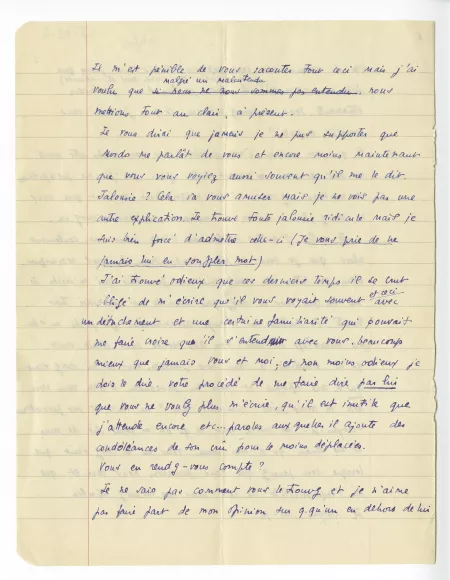 Il m'est pénible de vous raconter tout ceci mais j'ai
malgré un malentendu
voulu que si nous ne nous sommes pas entendu, nous
mettions tout au clair, à présent.
Je vous dirai que jamais je ne pus supporter que
me parlât de vous et encore moins maintenant
que vous vous voyiez aussi souvent qu'il me le dit.
Jalousie ? Cela va vous amuser mais je ne vois pas une
autre explication. Je trouve toute jalousie ridicule mais je
suis bien forcé d'admettre celle-ci (Je vous prie de ne
jamais lui en souffler mot)
J'ai trouvé odieux que ces derniers temps il se crut
obligé de m'écrire qu'il vous voyait souvent et ceci avec
un détachement et une certaine familiarité qui pouvait
me faire croire que il s'entend avec vous, beaucoup
mieux que jamais vous et moi, et non moins odieux je
dois le dire, votre procédé de me faire dire par lui
que vous ne voulez plus m'écrire, qu'il est inutile que
j'attende encore etc... paroles auxquelles il ajoute des
condoléances de son crû pour le moins déplacées.
Vous en rendez-vous compte ?
Je ne sais pas comment vous le trouvez et je n'aime
pas faire part de mon opinion sur q.qu'un en dehors de lui